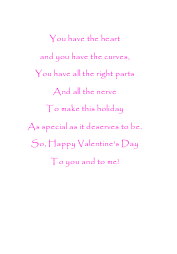 You have the heart
and you have the curves,
You have all the right parts
And all the nerve
To make this holiday
As special as it deserves to be.
So, Happy Valentine's Day
To you and to me!